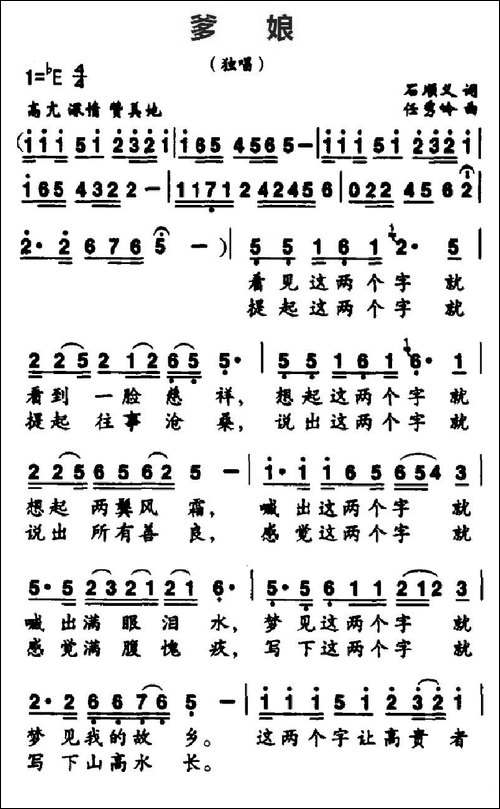 爹 娘
（独唱）
1=♭E 4/4
石顺义 词
高亢 深情 赞美地
任秀岭 曲
(i i i 5 i 2 3 2 i | i 6 5 4 5 6 5 – | i i i 5 i 2 3 2 i
i 6 5 4 3 2 2 – | 1 1 7 1 2 4 2 4 5 6 | 0 2 2 4 5 6 2
2· 2 6 7 6 5 – ) | 5 5 1 6 1 2· 5
看见这两个字 就
提起这两个字 就
2 2 5 2 1 2 6 5 5· | 5 5 1 6 1 6· 1
看到 一脸慈 祥，想起这两个字 就
提起 往事沧 桑，说出这两个字 就
2 2 5 6 5 6 2 5 – | i· i i 6 5 6 5 4 3
想起 两鬓风 霜， 喊 出这两个字 就
说出 所有善 良， 感 觉这两个字 就
5· 5 2 3 2 1 2 1 6· | 5· 5 6 1 1 2 1 2 3
喊 出满 眼泪 水，梦 见这两个字 就
感 觉满 腹愧 疚，写 下这两个字 就
2· 2 6 6 7 6 5 – | i i i 5 i 2 3 2 i
梦 见我的故 乡。 这两个字让高贵 者
写 下山高水 长。